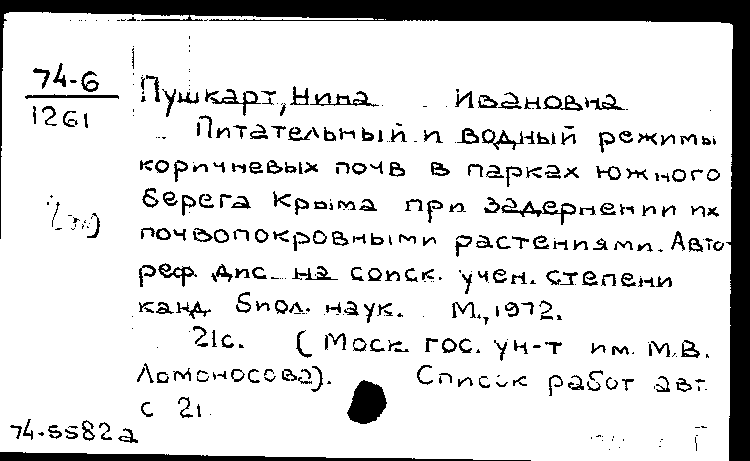 74-6
1261
Пушкарт, Нина Ивановна
Питательный и водный режимы
коричневых почв в парках южного
берега Крыма при задернении их
почвопокровными растениями. Авто-
реф. дис. на соиск. учен. степени
канд. биол. наук. М., 1972.
21с. (Моск. гос. ун-т им. М.В.
Ломоносова). Список работ авт.
с 21
74-5582а